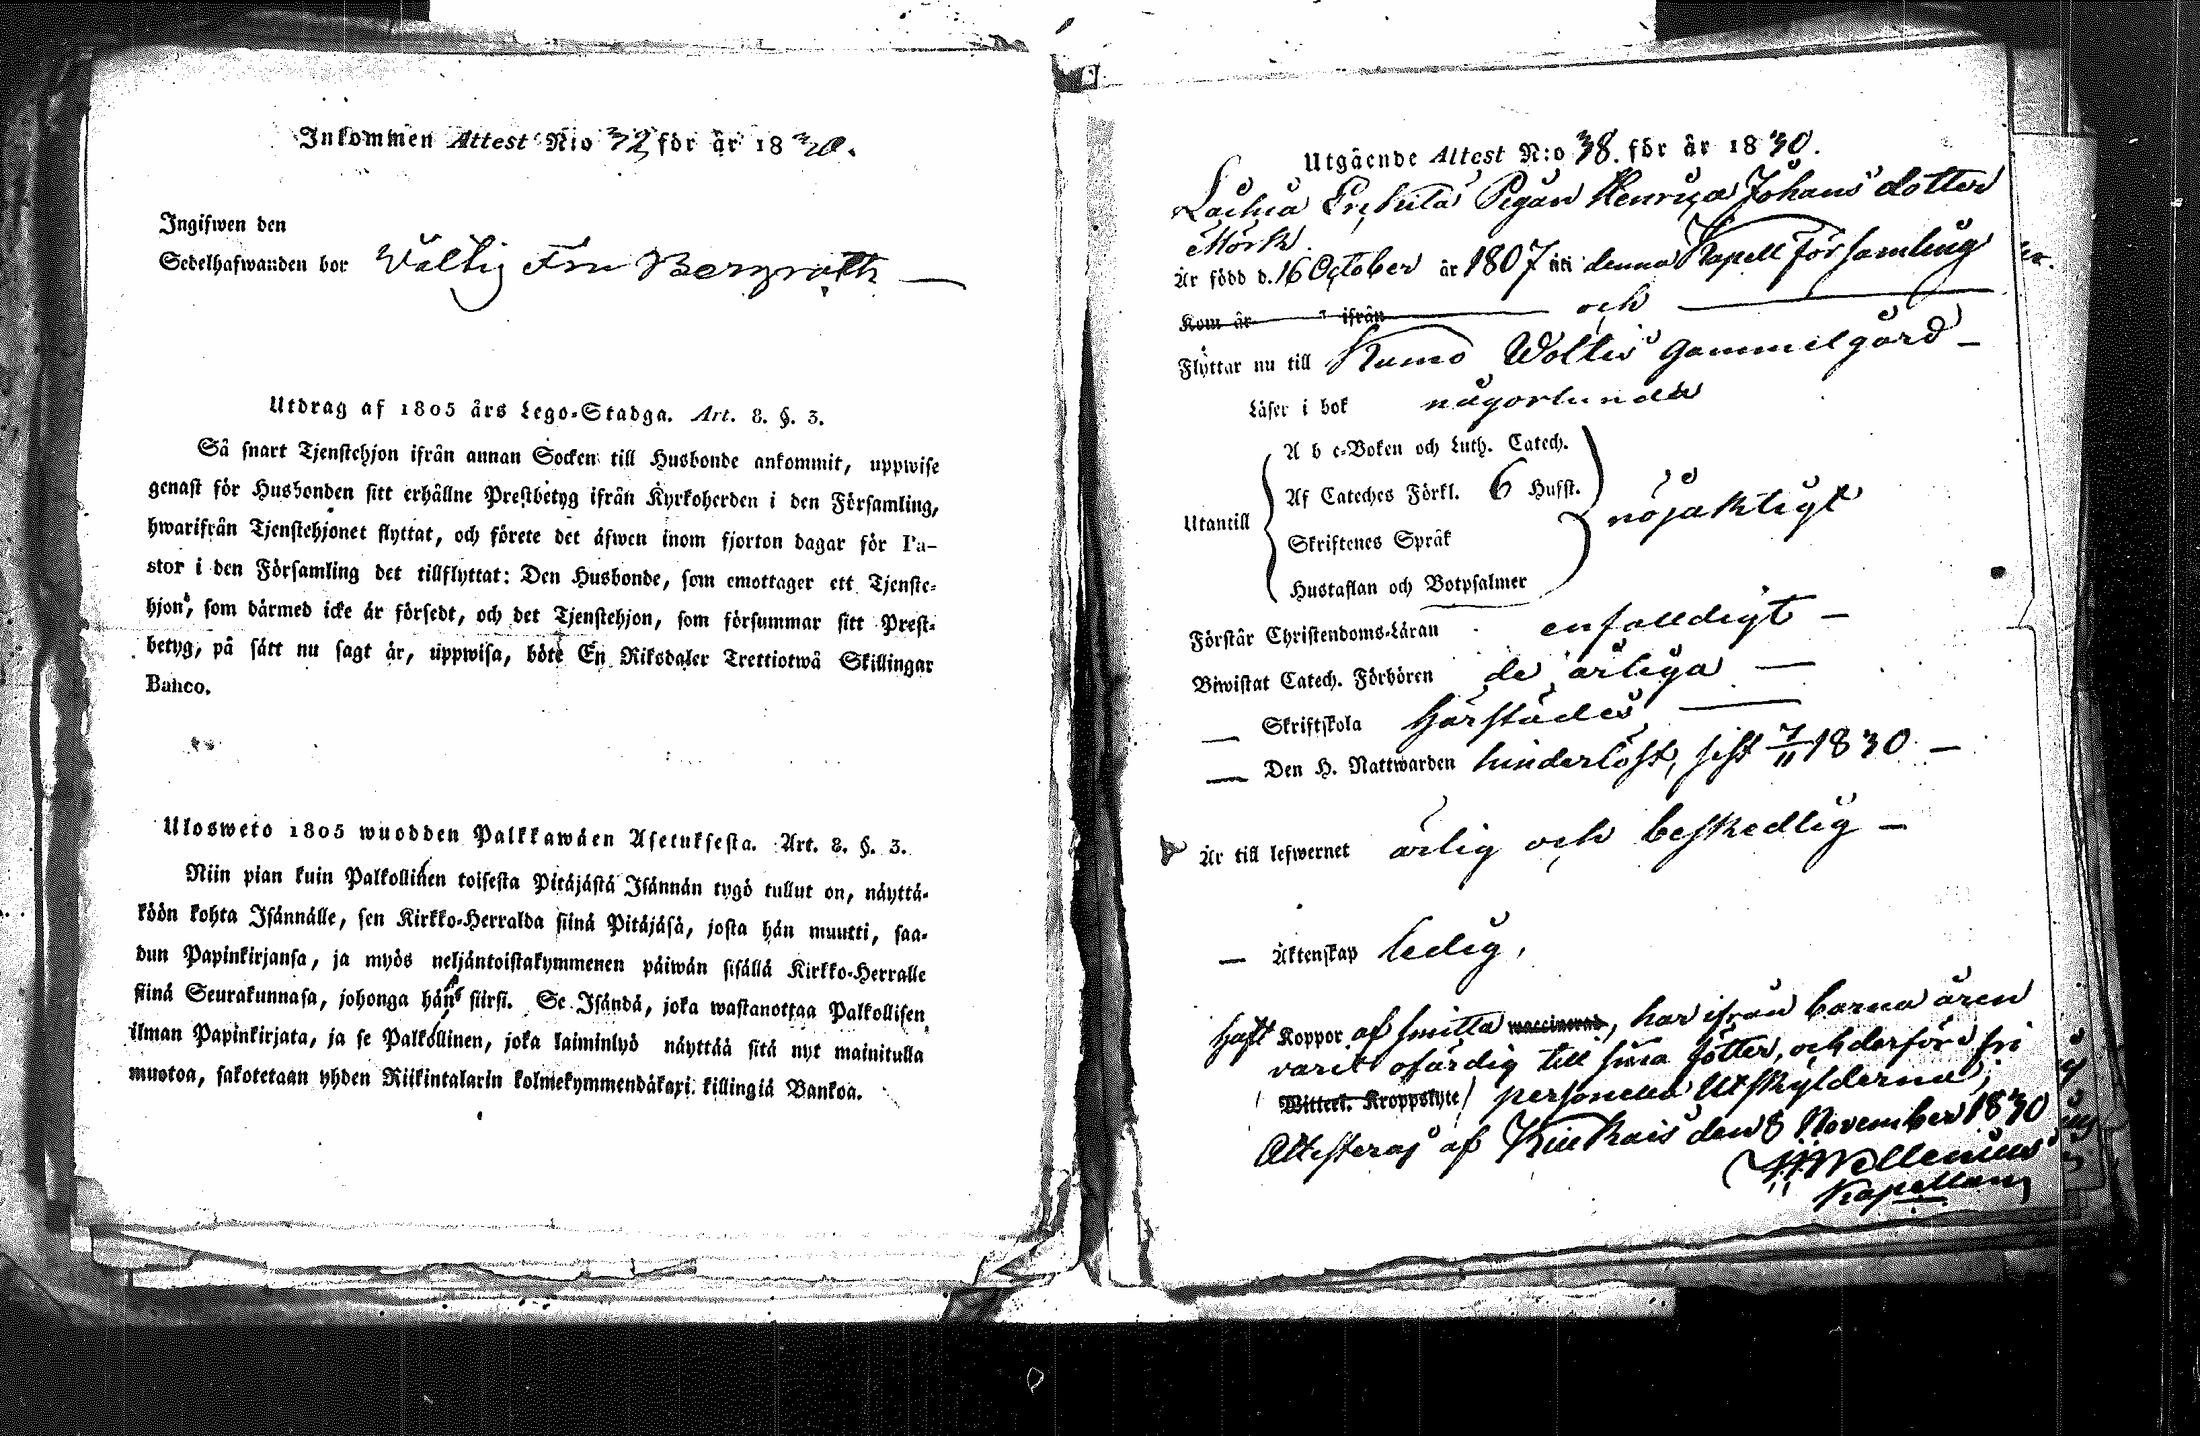 Inkommen Attest N:o 32 för år 1830.
Ingifwen den
Sedelhafwanden bor Wälbg Fru Bergroth
Utdrag af 1805 års Lego-Stadga. Art. 8. §. 3.
Så snart Tjenstehjon ifrån annan Socken till Husbonde ankommit, uppwise
genast för Husbonden sitt erhållne Prestbetyg ifrån Kyrkoherden i den Församling,
hwarifrån Tjenstehjonet flyttat, och förete det äfwen inom fjorton dagar för Pa-
stor i den Församling det tillflyttat: Den Husbonde, som emottager ett Tjenste-
hjon, som därmed icke är försedt, och det Tjenstehjon, som försummar sitt Prest-
betyg, på sätt nu sagt är, uppwisa, böte En Riksdaler Trettiotwå Skillingar
Banco.
Ulosweto 1805 wuodden Palkkawäen Asetuksesta. Art. 8. §. 3.
Niin pian kuin Palkollinen toisesta Pitäjästä Isännän tygö tullut on, näyttä-
köön kohta Isännälle, sen Kirkko-Herralda siinä Pitäjäsä, josta hän muutti, saa-
dun Papinkirjansa, ja myös neljäntoistakymmenen päiwän sisällä Kirkko-Herralle
siinä Seurakunnasa, johonga hän siirsi. Se Isändä, joka wastanottaa Palkollisen
ilman Papinkirjata, ja se Palkollinen, joka laiminlyö näyttää sitä nyt mainitulla
muotoa, sakotetaan yhden Riikintalarin kolmekymmendäkaxi killingiä Bankoa.
Utgående Attest N:o 38. för år 1830.
Pigan Henrica Johans dotter
Mörk.
Är född d. 16 October år 1807 uti denna Kapell församling
Kom år ifrån och
Flyttar nu till Kumo Gammelgård
Läser i bok någorlunda
A b c-Boken och Luth. Catech.
Af Cateches Förkl. 6 Hufst.
Utantill nöjaktigt
Skriftenes Språk
Hustaflan och Botpsalmer
Förstår Christendoms-Läran enfalldigt
Biwistat Catech. Förhören de årliga
— Skriftskola härstädes
— Den H. Nattwarden hinderlöst, sist 7/11 1830
Är till lefwernet ärlig och beskedlig
— Äktenskap ledig,
Haft Koppor af smitta waccinerad, har ifrån barna åren
varit ofärdig till sina fötter, och derföre fri
Witterl. Kroppslyte personella Utskylderna,
Attesteras af Kiukais den 8 November 1830
Kapellan